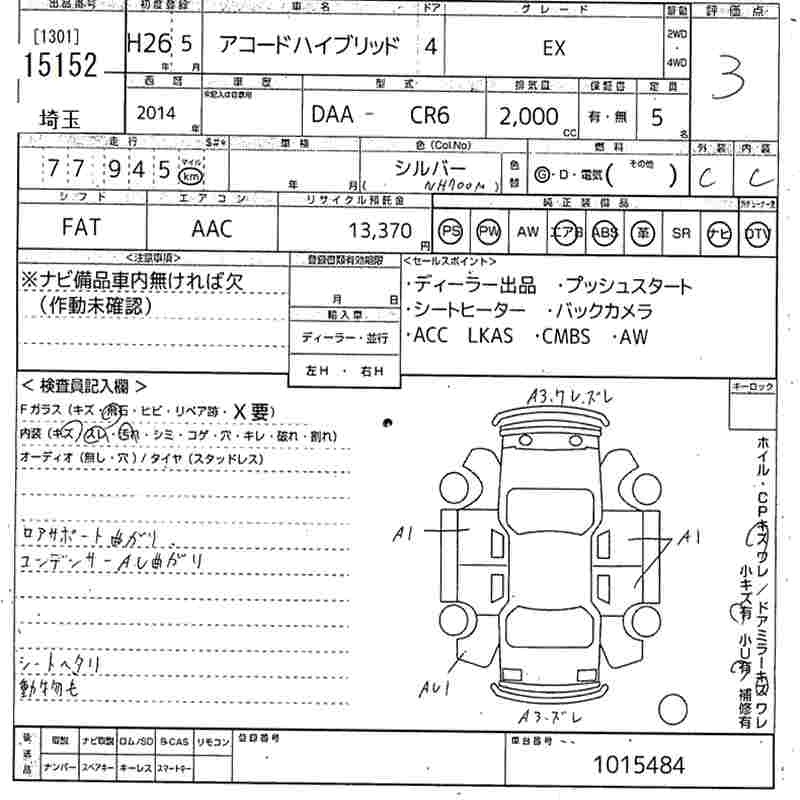 出品番号 初度登録 車名 ドア グレード 駆動 評価点
[1301] 15152 H26 5 アコードハイブリッド 4 EX 2WD・4WD 3
年 月
西暦 車歴 型式 排気量 保証書 定員
埼玉 2014 年 DAA - CR6 2,000 CC 有・無 5 名
走行 車検 色(Col.No) 燃料 外装 内装
77,945 マイル km 年 月 シルバー (NH700M) 色替 G・D・電気 (その他) C C
シフト エアコン リサイクル預託金 純正装備品
FAT AAC 13,370 円 PS PW AW エアB ABS 革 SR ナビ DTV
<注意事項> 登録書類有効期限 <セールスポイント>
※ナビ備品車内無ければ欠 ・ディーラー出品 ・プッシュスタート
(作動未確認) 月 日 ・シートヒーター ・バックカメラ
輸入車 ・ACC LKAS ・CMBS ・AW
ディーラー・並行
左H ・ 右H
<検査員記入欄> キーロック
Fガラス(キズ・飛石・ヒビ・リペア跡・X要)
内装(キズ・スレ・汚れ・シミ・コゲ・穴・キレ・破れ・割れ)
オーディオ(無し・穴)/タイヤ(スタッドレス)
A3.ワレ.ズレ
ロアサポート曲がり
コンデンサーAU曲がり
A1 A1
シートヘタリ
動物毛
AU1
A3.ズレ
ホイル・CPキズワレ/ドアミラーキズワレ
小キズ有 小U有 補修有
後送品 取説 ナビ取説 ロム/SD B-CAS リモコン 登録番号 車台番号
ナンバー スペアキー キーレス スマートキー 1015484